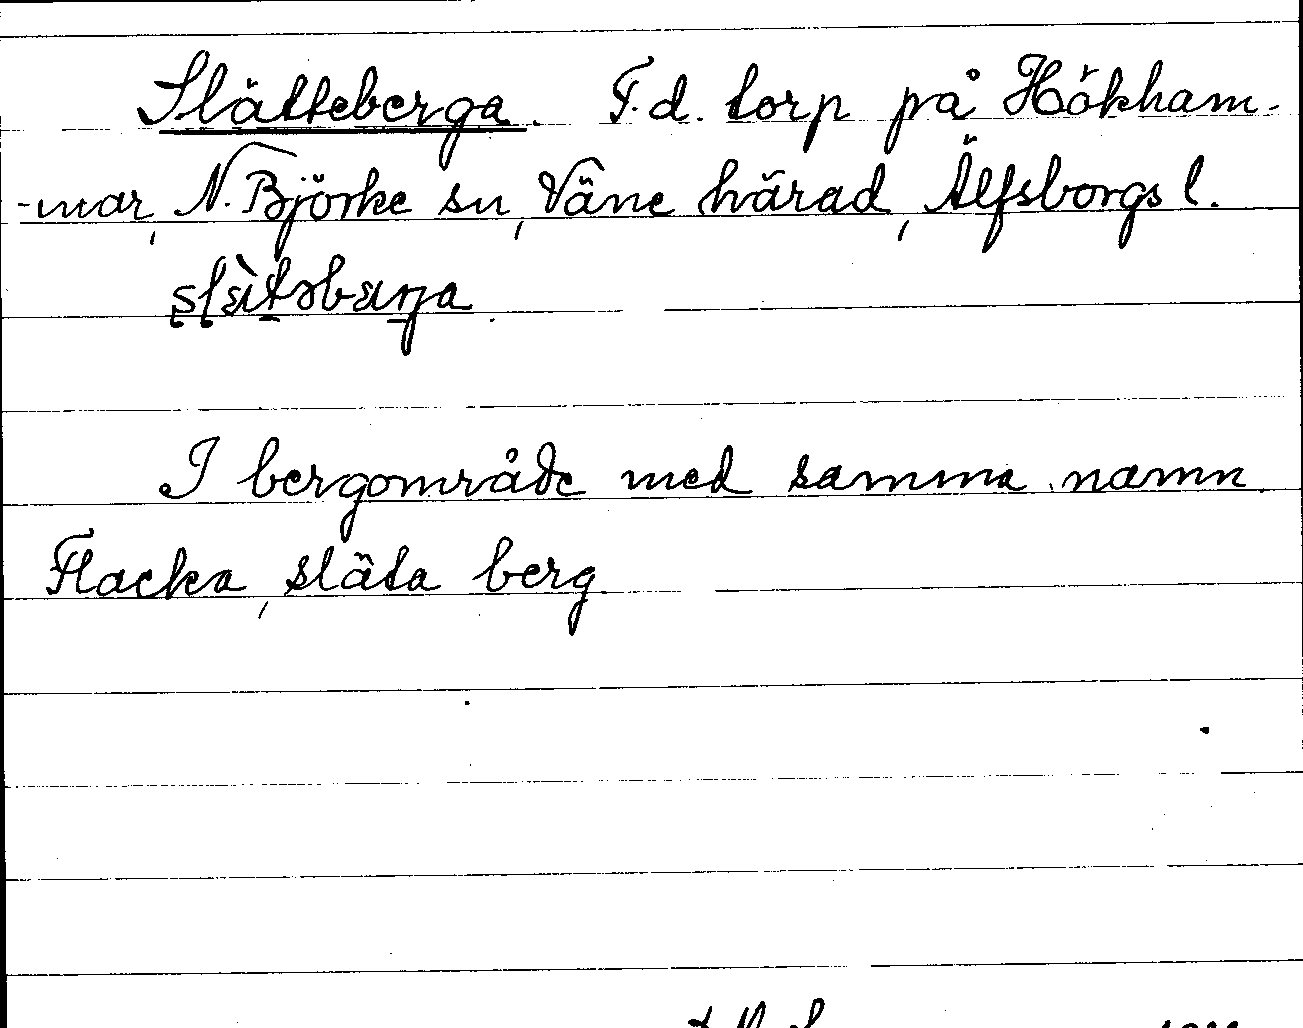 Slätteberga. F.d. torp på Hökham-
-mar, N. Björke sn, Väne härad, Älfsborgs l.
I bergområde med samma namn.
Flacka, släta berg.